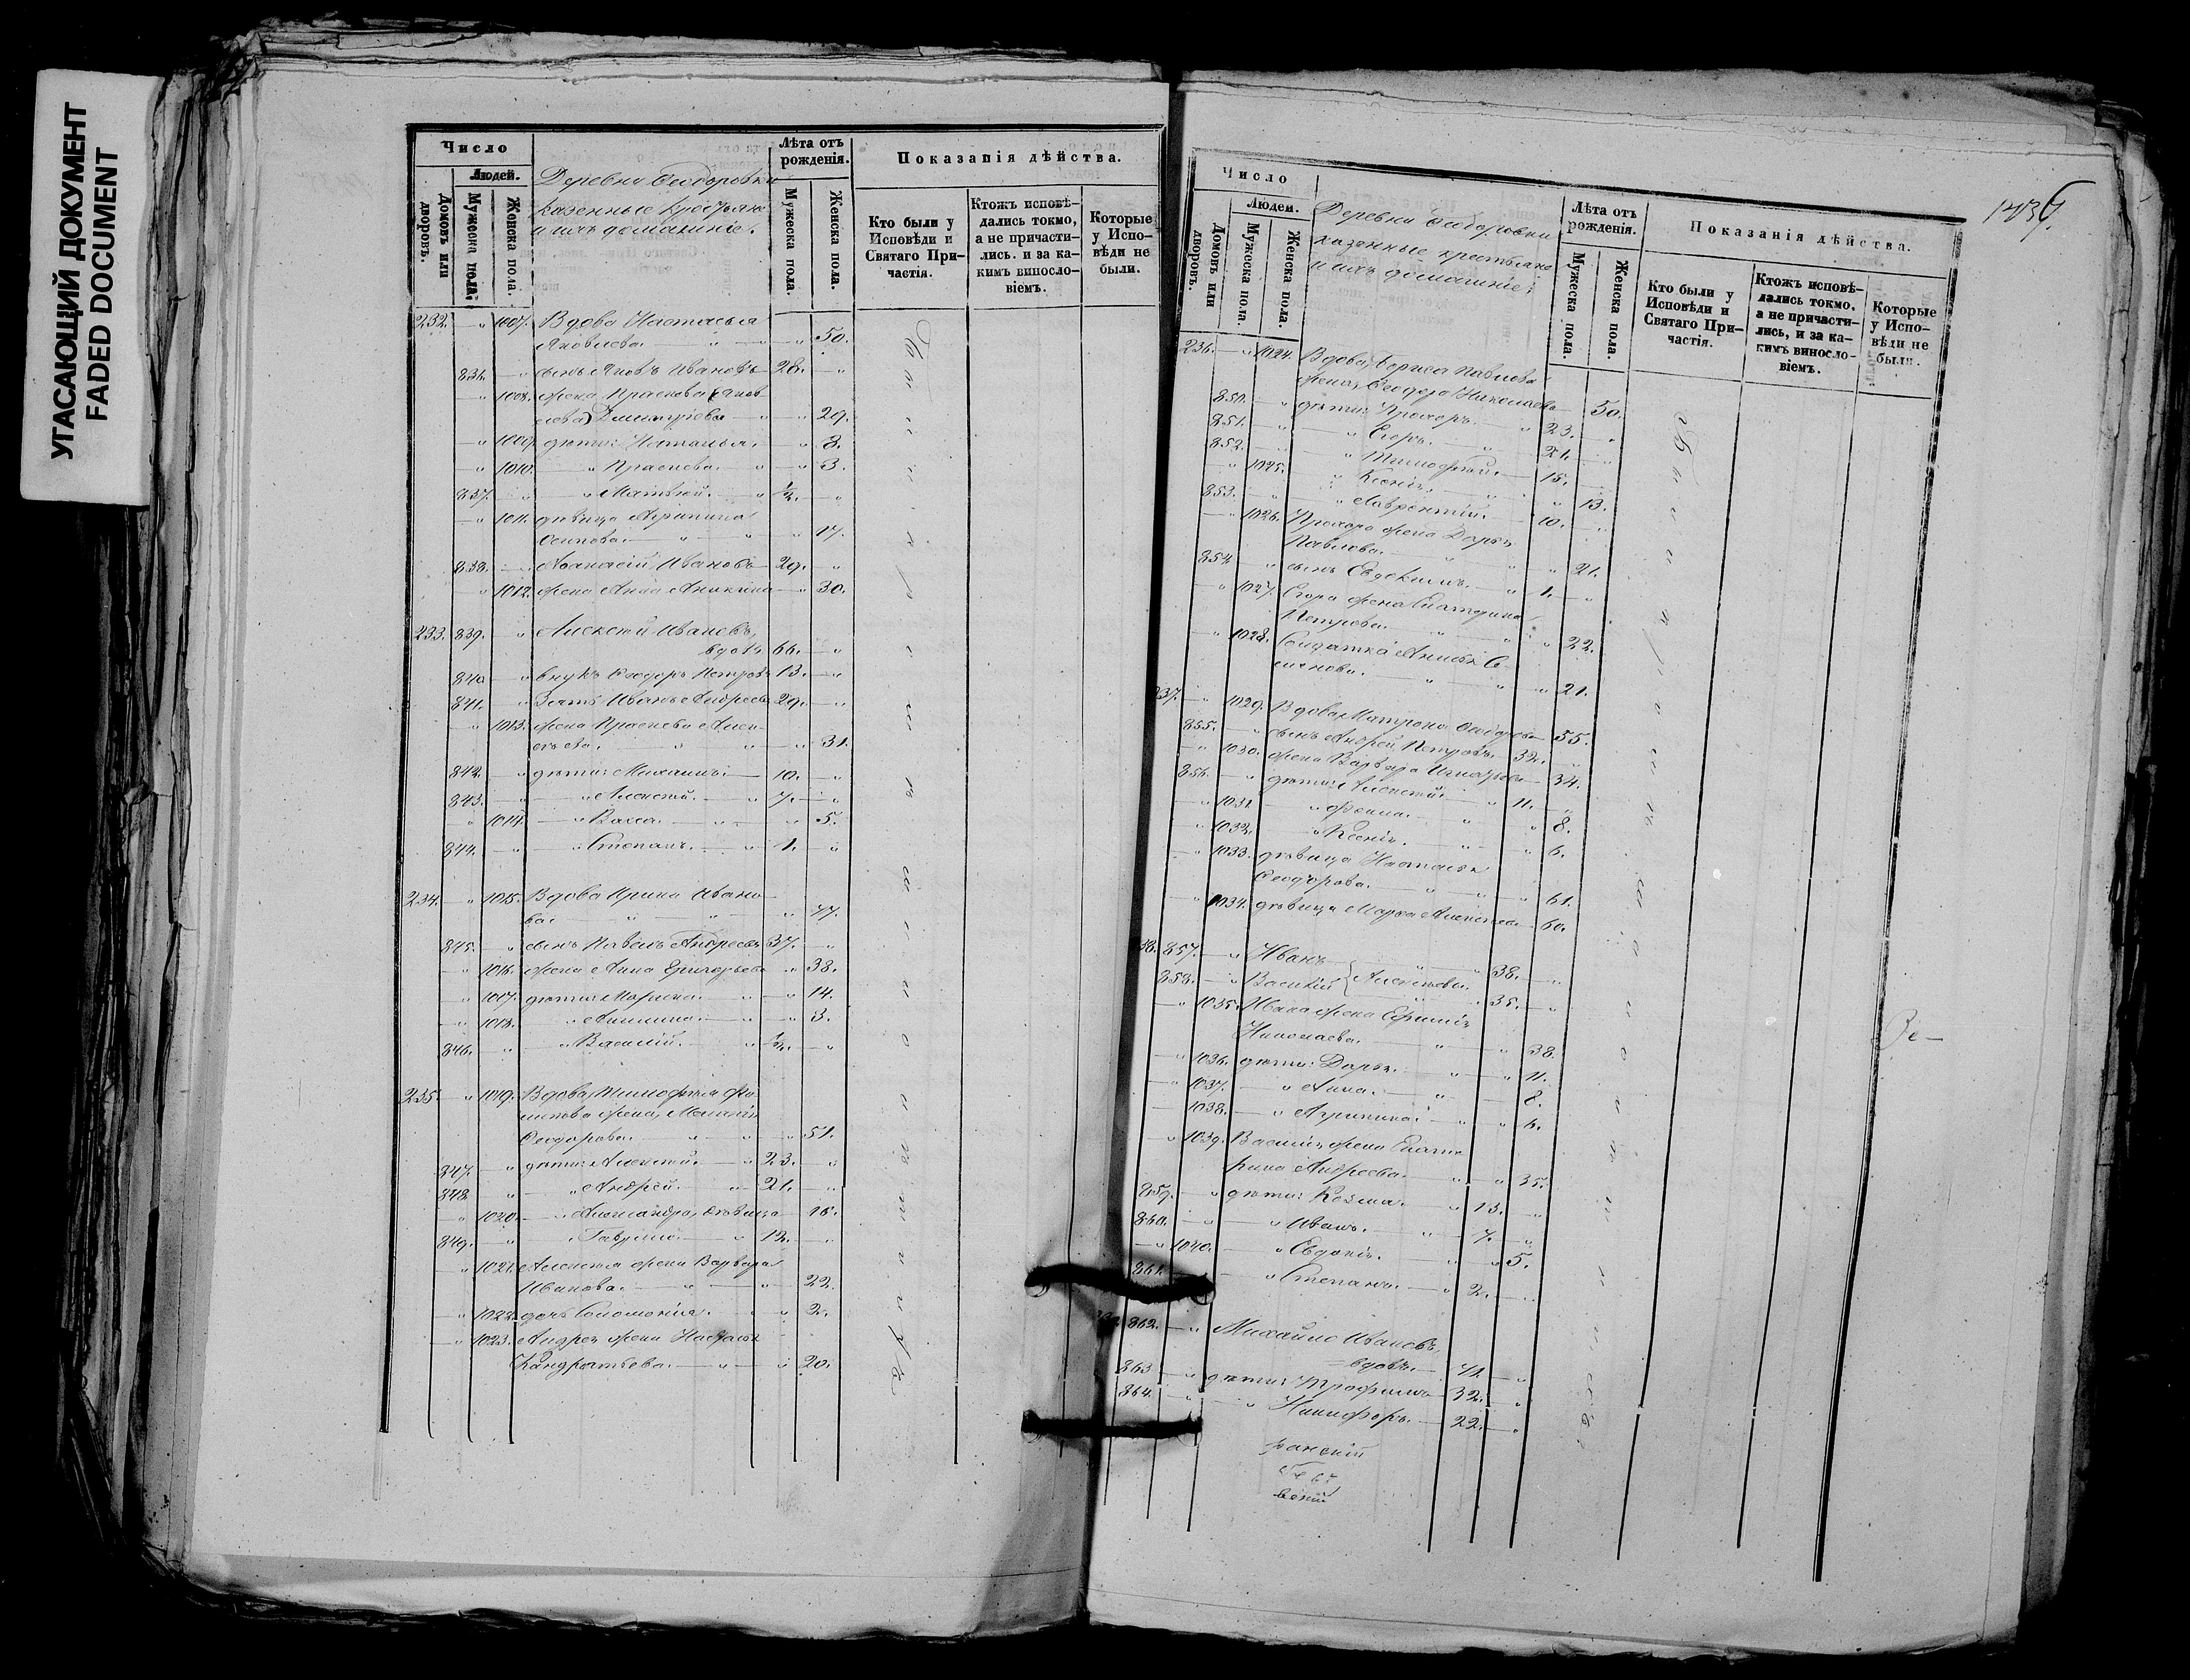 УГАСАЮЩИЙ ДОКУМЕНТ
FADED DOCUMENT
Число
Людей.
Домовъ или дворовъ.
Мужеска пола.
Женска пола.
Деревни Ѳеодоровки
казенные крестьяне
и ихъ домашніе.
Лѣта отъ рожденія.
Мужеска пола.
Женска пола.
Показанія дѣйства.
Кто были у Исповѣди и Святаго Причастія.
Ктожъ исповѣдались токмо, а не причастились. и за какимъ винословіемъ.
Которые у Исповѣди не были.
232. " 1007. Вдова Настасья
Яковлева. " 50.
836. " сынъ Яковъ Ивановъ 28. "
" 1008. жена Прасковья
Димитріева " 29.
" 1009. дѣти: Наталья. " 8.
" 1010. " Прасковья. " 3.
837. " " Матвѣй. 1/2. "
" 1011. дѣвица Агрипина
Осипова. " 17.
838. " Аѳанасій Ивановъ 29. "
" 1012. жена Анна Аникина " 30.
233. 839. " Алексѣй Ивановъ,
вдовъ 66. "
840. " внукъ Ѳеодоръ Петровъ 13. "
841. " Зять Иванъ Андреевъ 29. "
" 1013. жена Прасковья Алек-
сѣева. " 31.
842. " дѣти: Михаилъ. 10. "
843. " " Алексѣй. 7. "
" 1014. " Васса. " 5.
844. " " Степанъ. 1. "
234. " 1015. Вдова Ирина Ивано-
ва: " 77.
845. " сынъ Павелъ Андреевъ 37. "
" 1016. жена Анна Григорьева " 38.
" 1017. дѣти: Марина. " 14.
" 1018. " Акилина. " 3.
846. " " Василій. 1/2. "
235. " 1019. Вдова, Тимофея Фи-
липова жена, Меланія
Ѳеодорова. " 51.
847. " дѣти: Алексѣй. 23. "
848. " " Андрей. 21. "
" 1020. " Александра, дѣвица 16.
849. " " Гавріилъ. 12. "
" 1021. Алексѣя жена Варвара
Иванова. " 22.
" 1022. дочь Соломонія. " 2.
" 1023. Андрея жена Настасья
Кандратьева. " 20.
Число
Людей.
Домовъ или дворовъ.
Мужеска пола.
Женска пола.
Деревни Ѳеодоровки
казенные крестьяне
и ихъ домашніе.
Лѣта отъ рожденія.
Мужеска пола.
Женска пола.
Показанія дѣйства.
Кто были у Исповѣди и Святаго Причастія.
Ктожъ исповѣдались токмо, а не причастились, и за какимъ винословіемъ.
Которые у Исповѣди не были.
236. " 1024. Вдова, Бориса Павлова
жена, Ѳеодора Николаева 50.
850. " дѣти: Прохоръ. 23. "
851. " " Егоръ. 21. "
852. " " Тимофей. 15. "
" 1025. " Ксенія. " 13.
853. " " Лаврентій. 10. "
" 1026. Прохора жена Дарья
Павлова. " 21.
854. " сынъ Евдокимъ. 1. "
" 1027. Егора жена Екатерина
Петрова. " 22.
" 1028. Солдатка Анисья Се-
менова. " 21.
237. " 1029. Вдова Матрона 55.
855. " сынъ Андрей Петровъ. 32. "
" 1030. жена Варвара Игнатьева 34.
856. " дѣти: Алексѣй. 11. "
" 1031. " Фекла. " 8.
" 1032. " Ксенія. " 6.
" 1033. дѣвица Настасья
Ѳеодорова. " 61.
" 1034. дѣвица Марѳа Алексѣева 60.
857. " Иванъ 38. "
858. " Василій } Алексѣевы. 35. "
" 1035. Ивана жена Ефимія
Николаева. " 38.
" 1036. дѣти: Дарья. " 11.
" 1037. " Анна. " 8.
1038. " Агрипина. " 6.
" 1039. Василія жена Екате-
рина Андреева. " 35.
859. " дѣти: Козма. 13. "
860. " " Иванъ. 7. "
" 1040. " Евдокія. " 5.
861. " Степанъ. 2. "
862. " Михайло Ивановъ,
вдовъ. 71. "
863. " дѣти: Трофимъ 32. "
864. " " Никифоръ. 22. "